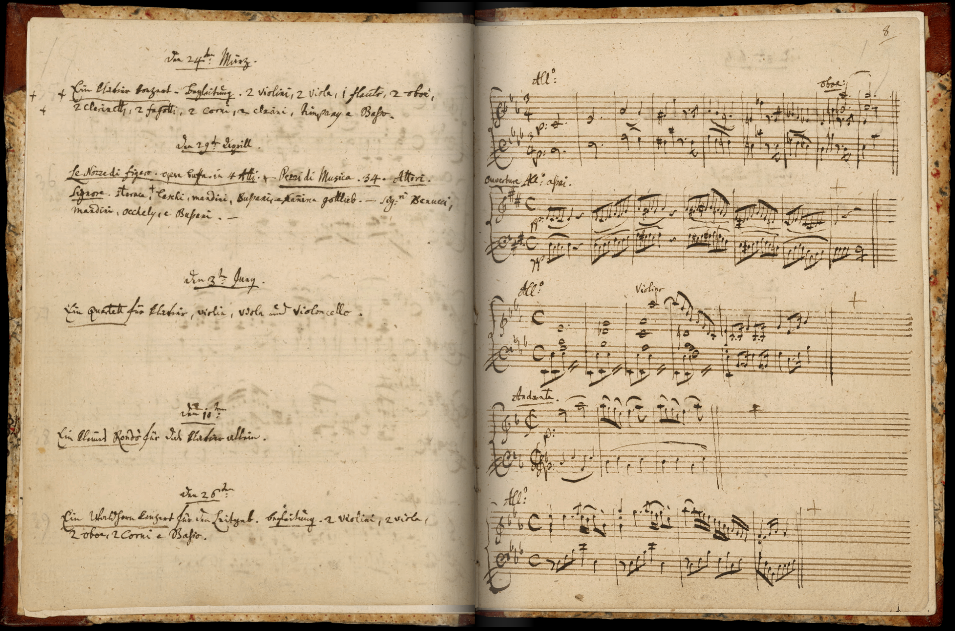 den 24ten März.
Ein klavier konzert. Begleitung. 2 violini, 2 viole, 1 flauto, 2 oboi,
2 clarinetti, 2 fagotti, 2 corni, 2 clarini, timpany e Baßo.
den 29ten Aprill.
Le Nozze di Figaro. opera buffa. in 4 Atti. Pezzi di Musica. 34. Attori.
Signore. storace, laschi, mandini, Bussani, e gottlieb. — Sig:ri Benucci,
mandini, occhely, e Bussani. —
den 3ten Juny.
Ein quartett für klavier, violin, viola und violoncello.
den 10ten
Ein kleines Rondò für das klavier allein.
den 26ten
Ein Waldhorn konzert für den Leitgeb. begleitung. 2 violini, 2 viole,
2 oboe, 2 Corni e Baßo.
8
All:o
oboe
p:
p:
ouverture All:o assai.
pp:
pp:
All:o
Violino
Andante.
p:
All:o